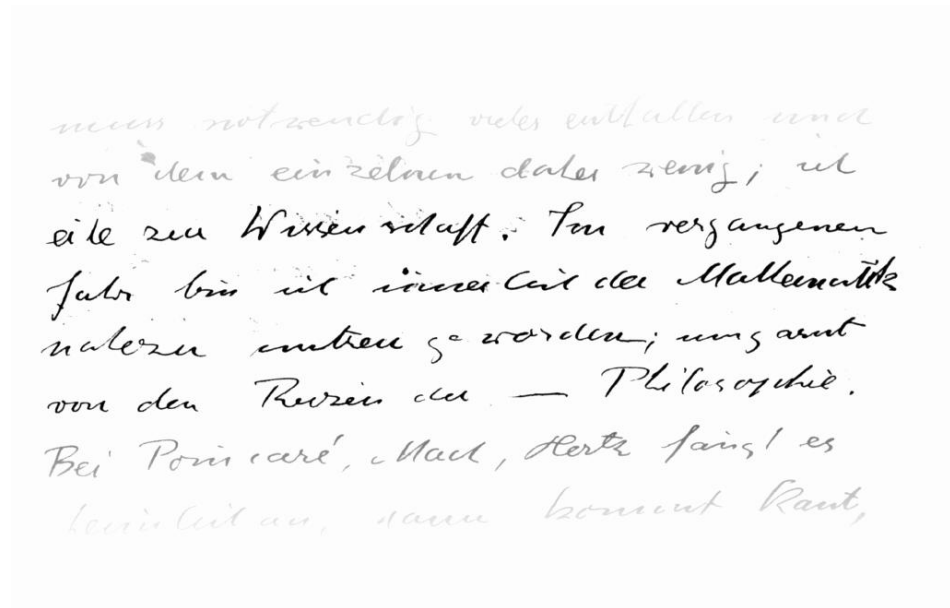 muss notwendig vieles entfallen und
von dem einzelnen daher wenig; ich
eile zur Wissenschaft. Im vergangenen
Jahr bin ich innerlich der Mathematik
nahezu untreu geworden; umgarnt
von den Reizen der — Philosophie.
Bei Poincaré, Mach, Hertz fängt es
heimlich an, dann kommt Kant,